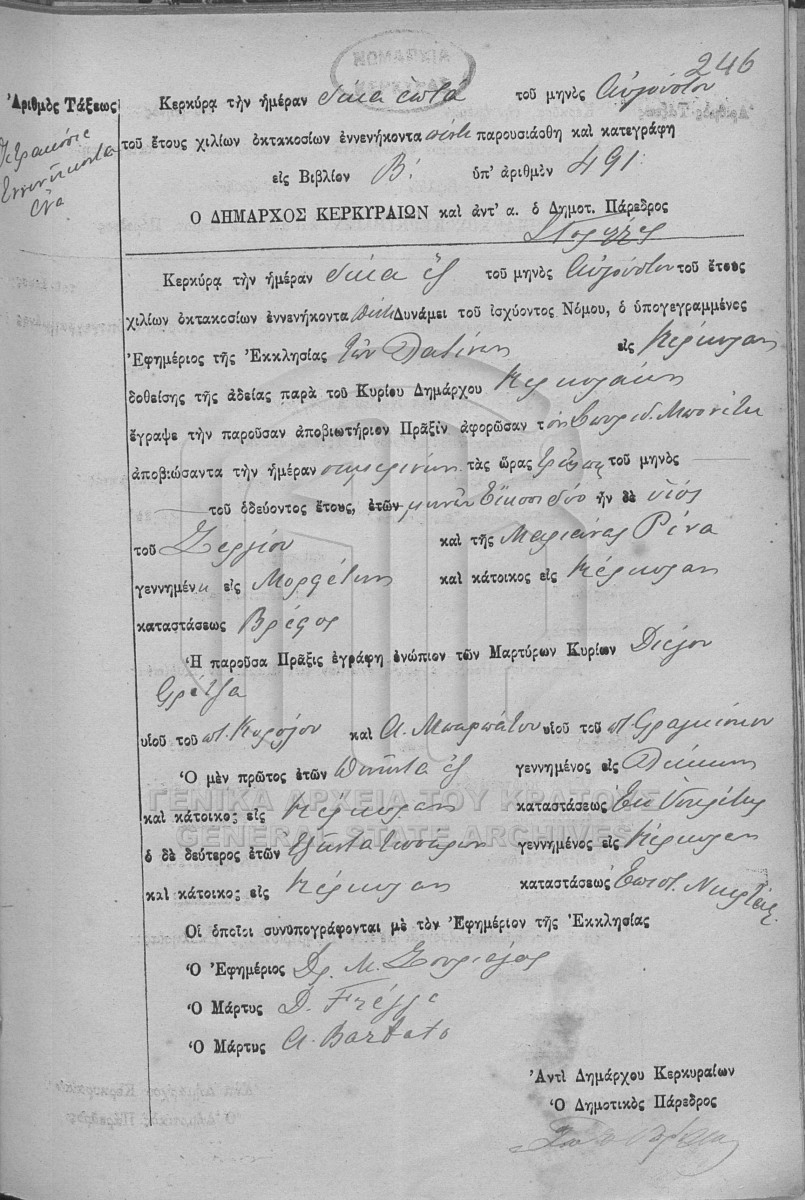 246
Ἀριθμὸς Τάξεως
Τετρακόσια
Ἐννενήκοντα
ἕνα
Κερκύρᾳ τὴν ἡμέραν δέκα ἑπτά τοῦ μηνὸς Αὐγούστου
τοῦ ἔτους χιλίων ὀκτακοσίων ἐννενήκοντα πέντε παρουσιάσθη καὶ κατεγράφη
εἰς Βιβλίον Β! ὑπ' ἀριθμὸν 491
Ο ΔΗΜΑΡΧΟΣ ΚΕΡΚΥΡΑΙΩΝ καὶ ἀντ' α. ὁ Δημοτ. Πάρεδρος
Κερκύρᾳ τὴν ἡμέραν δέκα ἕξ τοῦ μηνὸς Αὐγούστου τοῦ ἔτους
χιλίων ὀκτακοσίων ἐννενήκοντα πέντε Δυνάμει τοῦ ἰσχύοντος Νόμου, ὁ ὑπογεγραμμένος
Ἐφημέριος τῆς Ἐκκλησίας τῶν Λατίνων εἰς Κέρκυραν
δοθείσης τῆς ἀδείας παρὰ τοῦ Κυρίου Δημάρχου Κερκυραίων
ἔγραψε τὴν παροῦσαν ἀποβιωτήριον Πρᾶξιν ἀφορῶσαν τὸν Σπυρίδ.
ἀποβιώσαντα τὴν ἡμέραν σημερινήν τὰς ὥρας τοῦ μηνὸς
τοῦ ὁδεύοντος ἔτους, ἐτῶν μηνῶν Εἴκοσι δύο ἦν δὲ υἱός
τοῦ Σεργίου καὶ τῆς Μαριάνας Ρίνα
γεννημέν εἰς καὶ κάτοικος εἰς Κέρκυραν
καταστάσεως Βρέφος
Ἡ παροῦσα Πρᾶξις ἐγράφη ἐνώπιον τῶν Μαρτύρων Κυρίων Διέγου
Φρέτζα
υἱοῦ τοῦ ποτ. Καρόλου καὶ Α. Μπαρμπάτου υἱοῦ τοῦ ποτ. Φραγκίσκου
Ὁ μὲν πρῶτος ἐτῶν ἕξ γεννημένος εἰς
καὶ κάτοικος εἰς Κέρκυραν καταστάσεως
ὁ δὲ δεύτερος ἐτῶν Ἑξήντα τεσσάρων γεννημένος εἰς Κέρκυραν
καὶ κάτοικος εἰς Κέρκυραν καταστάσεως
Οἱ ὁποῖοι συνυπογράφονται μὲ τὸν Ἐφημέριον τῆς Ἐκκλησίας
Ὁ Ἐφημέριος Δρ. Μ.
Ὁ Μάρτυς D.
Ὁ Μάρτυς A. Barbato
Ἀντὶ Δημάρχου Κερκυραίων
Ὁ Δημοτικὸς Πάρεδρος
ΓΕΝΙΚΑ ΑΡΧΕΙΑ ΤΟΥ ΚΡΑΤΟΥΣ
GENERAL STATE ARCHIVES